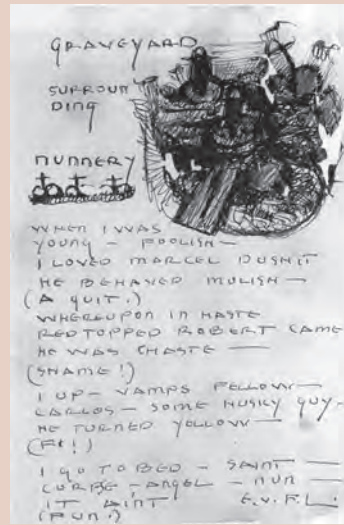 GRAVEYARD
SURROUN
DING
NUNNERY
WHEN I WAS
YOUNG — FOOLISH —
I LOVED MARCEL DUSHIT
HE BEHAVED MULISH —
(A QUIT.)
WHEREUPON IN HASTE
RED TOPPED ROBERT CAME
HE WAS CHASTE —
(SHAME!)
I UP — VAMPS FELLOW —
CARLOS — SOME HUSKY GUY —
HE TURNED YELLOW —
I GO TO BED — SAINT —
ANGEL — NUN —
IT AINT E.V.F.L.
(FUN.)